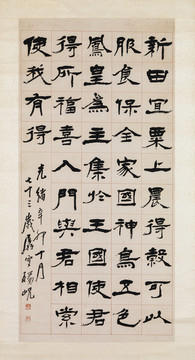 新田宜粟上農得穀可以
服食保全家國神鳥五色
鳳皇為主集於王國使君
得所福喜入門與君相索
使我有得
光緒辛卯十月
七十三歲 叟楊峴